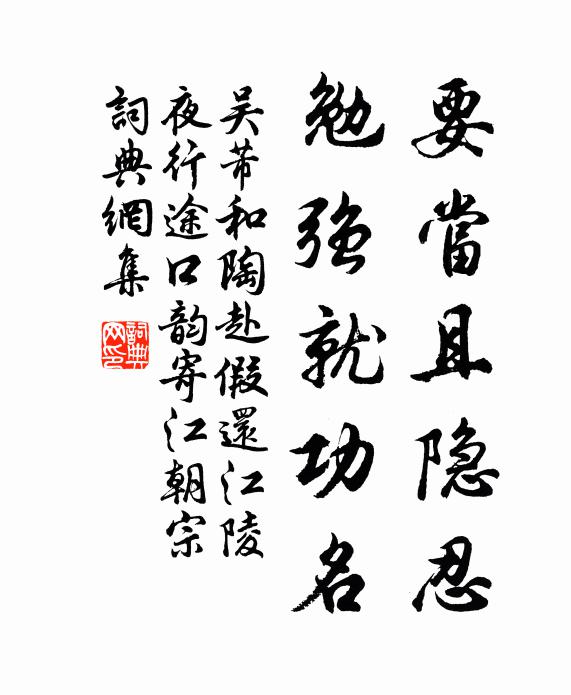 要當且隐忍
勉强就功名
吴芾和陶赴假還江陵
夜行途口韵寄江朝宗
詞典網集
詞典网印